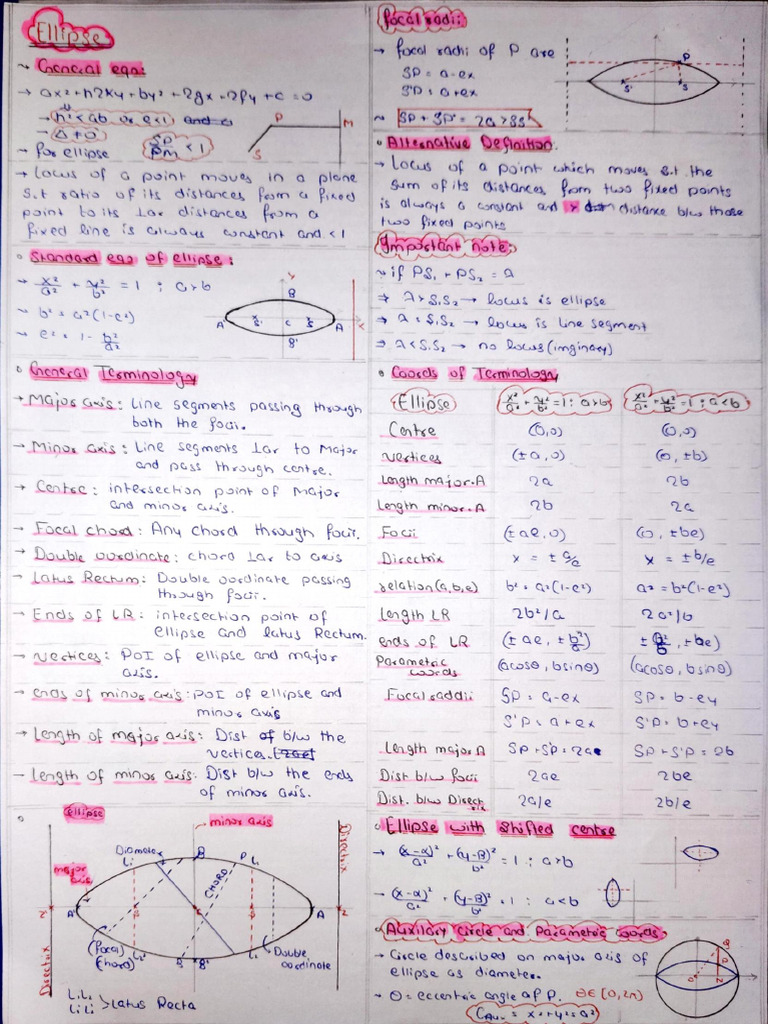 Ellipse
General eqn:
→ ax² + h2xy + by² + 2gx + 2fy + c = 0
→ h² < ab or e<1
→ Δ ≠ 0
→ for ellipse SP/PM < 1
P
M
S
→ Locus of a point moves in a plane
s.t ratio of its distances from a fixed
point to its ⊥ar distances from a
fixed line is always constant and <1
Standard eqn of ellipse:
→ x²/a² + y²/b² = 1 ; a>b
→ b² = a²(1-e²)
→ e² = 1 - b²/a²
Y
B
A' S' C S A
B'
General Terminology
→ Major axis: Line segments passing through
both the foci.
→ Minor axis: Line segments ⊥ar to Major
and pass through centre.
→ Centre: intersection point of Major
and minor axis.
→ Focal chord: Any chord through foci.
→ Double oordinate: chord ⊥ar to axis
→ Latus Rectum: Double oordinate passing
through foci.
→ Ends of LR: intersection point of
ellipse and latus Rectum.
→ vertices: PoI of ellipse and major
axis.
→ ends of minor axis: PoI of ellipse and
minor axis
→ Length of major axis: Dist of b/w the
vertices.
→ Length of minor axis: Dist b/w the ends
of minor axis.
Ellipse
minor axis
Directrix
Diameter
L₁ B P L₁
major
axis
CHORD
A' A
Z' Z
(focal
chord)
L₂' S B' L₂
Double
oordinate
Directrix
L₁L₂
L₁'L₂' > Latus Recta
Focal radii:
→ focal radii of P are
SP = a-ex
S'P = a+ex
→ SP + SP' = 2a > SS'
P
S' S
Alternative Definition.
→ Locus of a point which moves s.t. the
sum of its distances from two fixed points
is always a constant and > distance b/w those
two fixed points
Important note:
→ if PS₁ + PS₂ = λ
⇒ λ > S₁S₂ → locus is ellipse
⇒ λ = S₁S₂ → locus is line segment
⇒ λ < S₁S₂ → no locus (imginary)
Coords of Terminology
Ellipse x²/a² + y²/b² = 1 ; a>b x²/a² + y²/b² = 1 ; a<b
Centre (0,0) (0,0)
vertices (±a, 0) (0, ±b)
Length major.A 2a 2b
Length minor.A 2b 2a
Focii (±ae, 0) (0, ±be)
Directrix x = ±a/e x = ±b/e
relation(a,b,e) b² = a²(1-e²) a² = b²(1-e²)
length LR 2b²/a 2a²/b
ends of LR (±ae, ±b²/a) ±a²/b, ±be)
Parametric
coords (acosθ, bsinθ) (acosθ, bsinθ)
Focal raddii SP = a-ex SP = b-ey
S'P = a+ex S'P = b+ey
Length major A SP+S'P = 2a SP+S'P = 2b
Dist b/w foci 2ae 2be
Dist. b/w Directrix 2a/e 2b/e
Ellipse with shifted centre
→ (x-α)²/a² + (y-β)²/b² = 1 ; a>b
→ (x-α)²/a² + (y-β)²/b² = 1 ; a<b
Auxilory circle and Parametric coords.
→ Circle described on major axis of
ellipse as diameter.
→ θ = eccentric angle of P. θ∈[0,2π)
CAux = x²+y² = a²